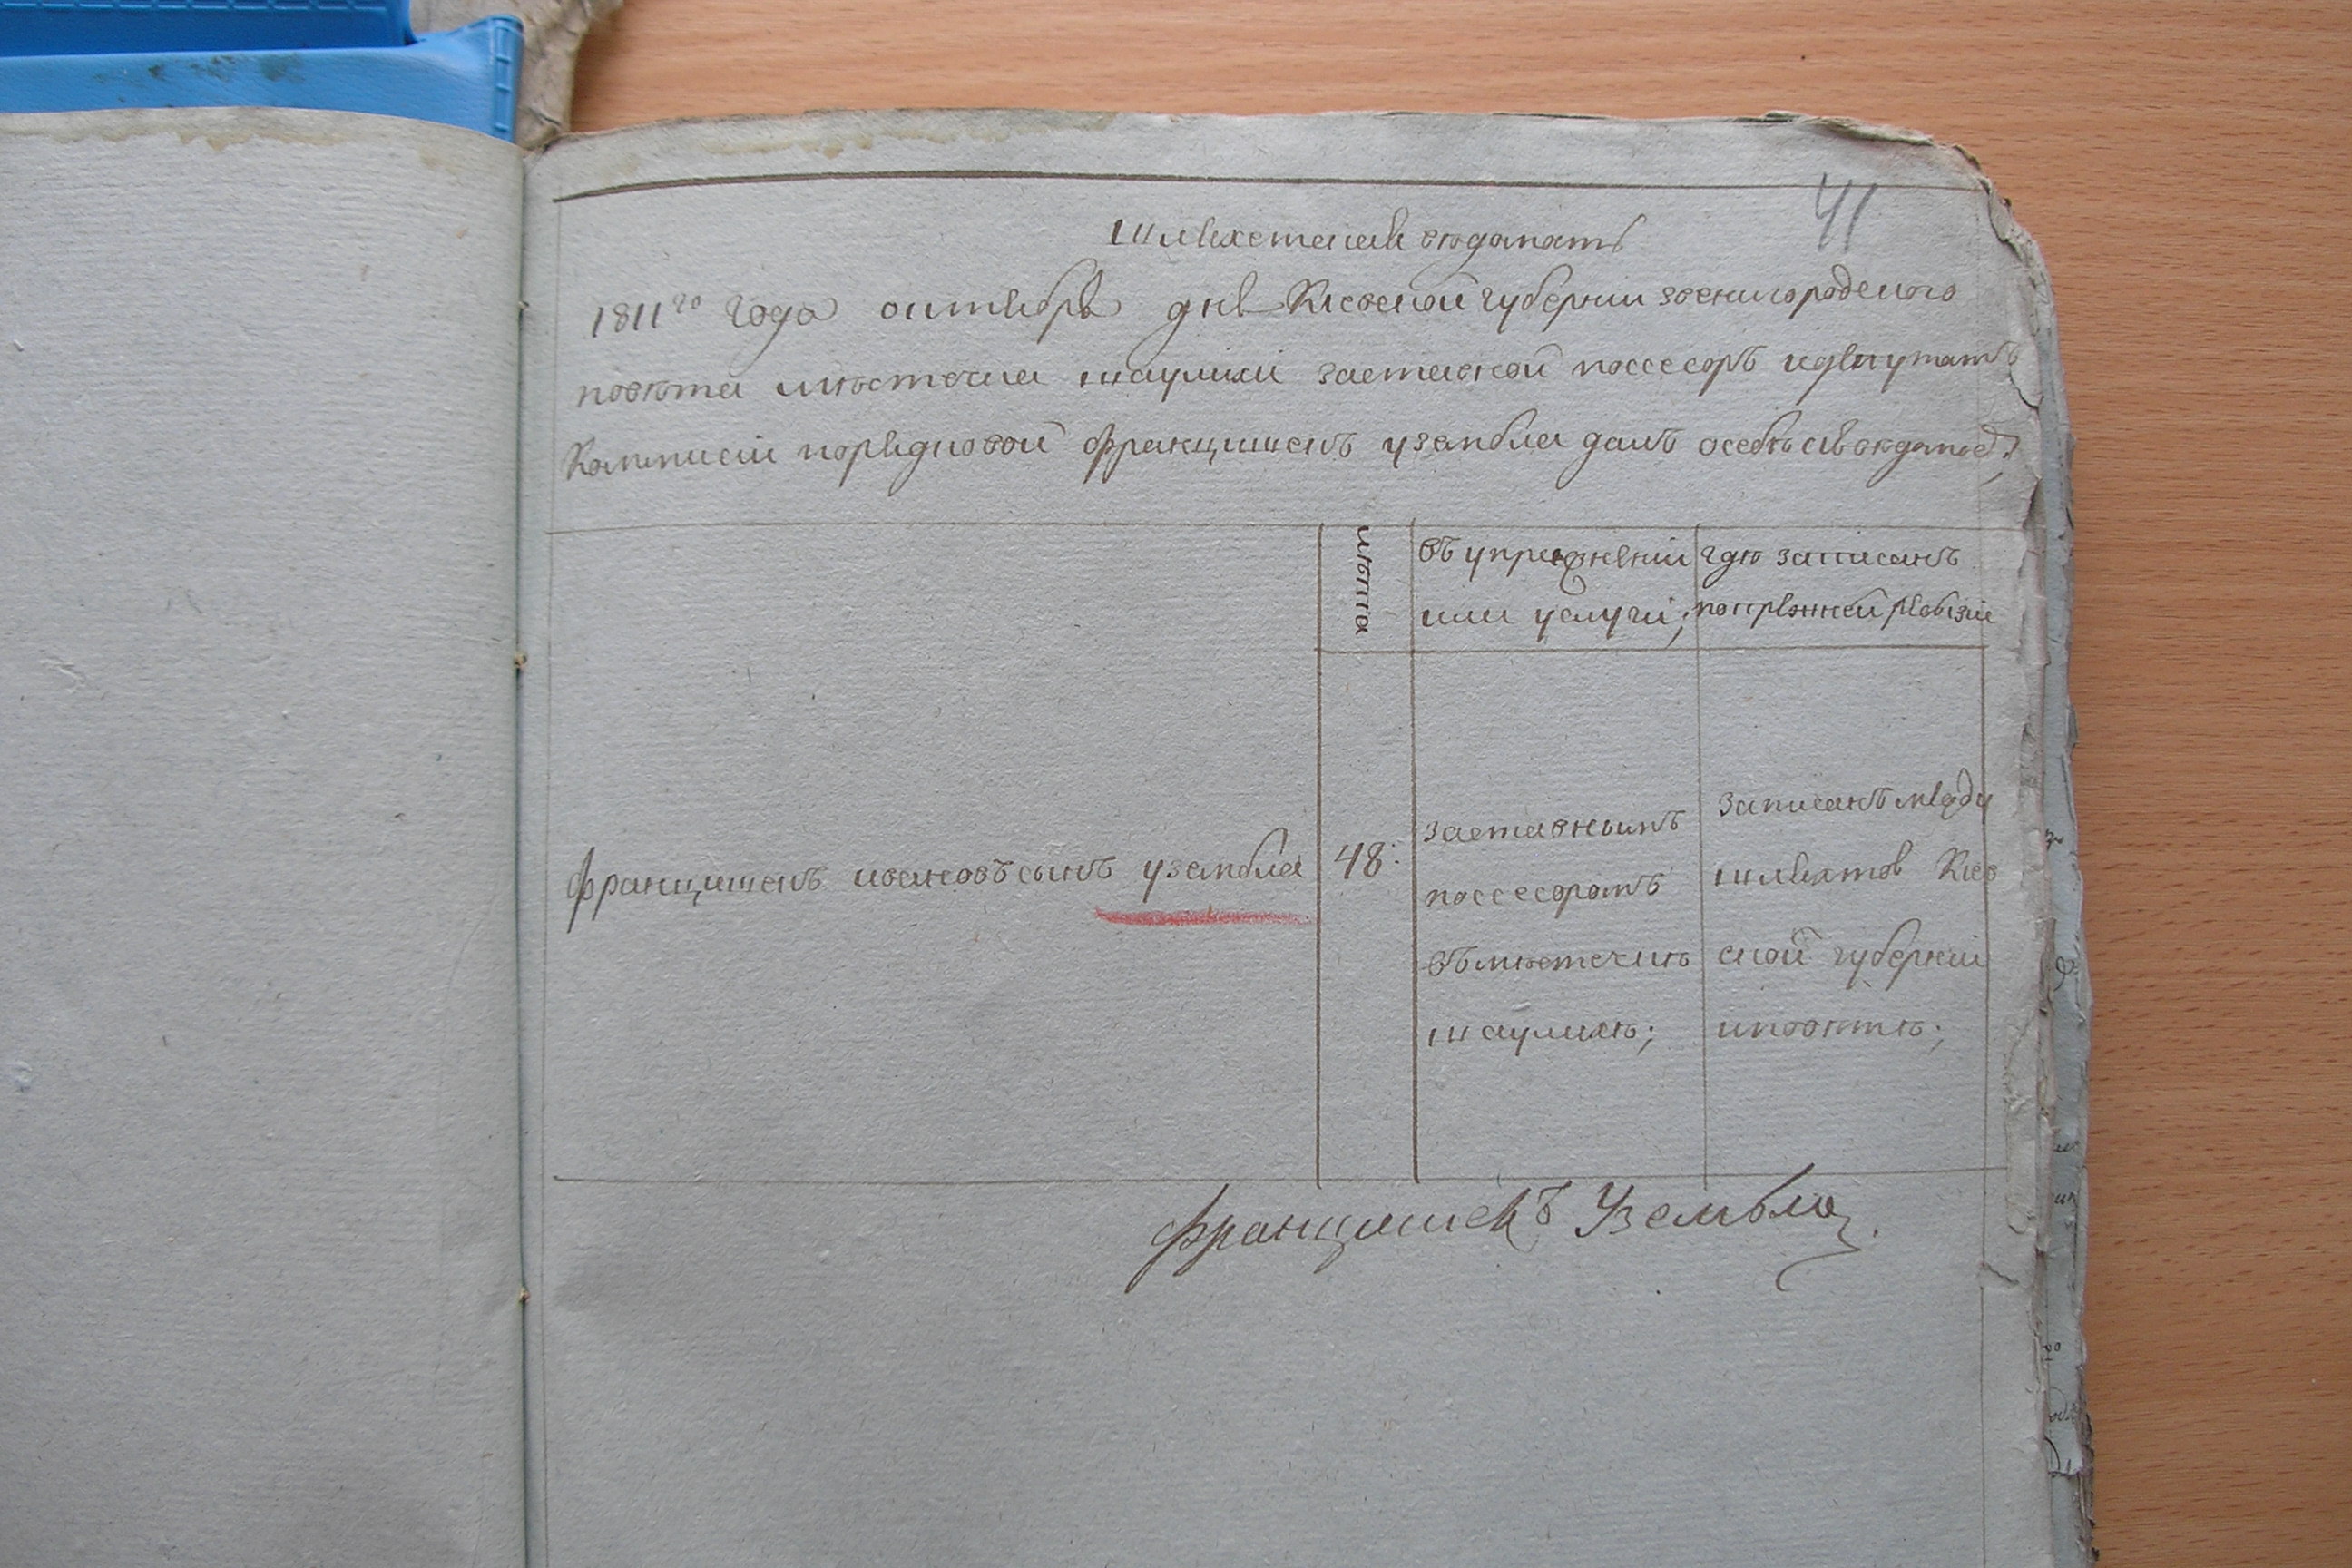 41
Шляхетская скаска
1811го года октября дня Киевской губернии звенигородского
повѣта мѣстечка шаулихи заставной поссесоръ и депутатъ
Коммисіи порядковой францишекъ узембла далъ о себѣ
лѣта
въ упражненіи
или услуги;
гдѣ записанъ
по прежней ревизіи
францишекъ ивановъ сынъ узембла
48:
заставнымъ
поссесоромъ
въ мѣстечкѣ
шаулихѣ;
записанъ между
шляхтов Киев
ской губерніи
и повѣтѣ;
францишекъ Узембла.